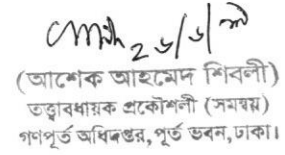 ২৬/৬/
(আশেক আহমেদ শিবলী)
তত্ত্বাবধায়ক প্রকৌশলী (সমন্বয়)
গণপূর্ত অধিদপ্তর, পূর্ত ভবন, ঢাকা।